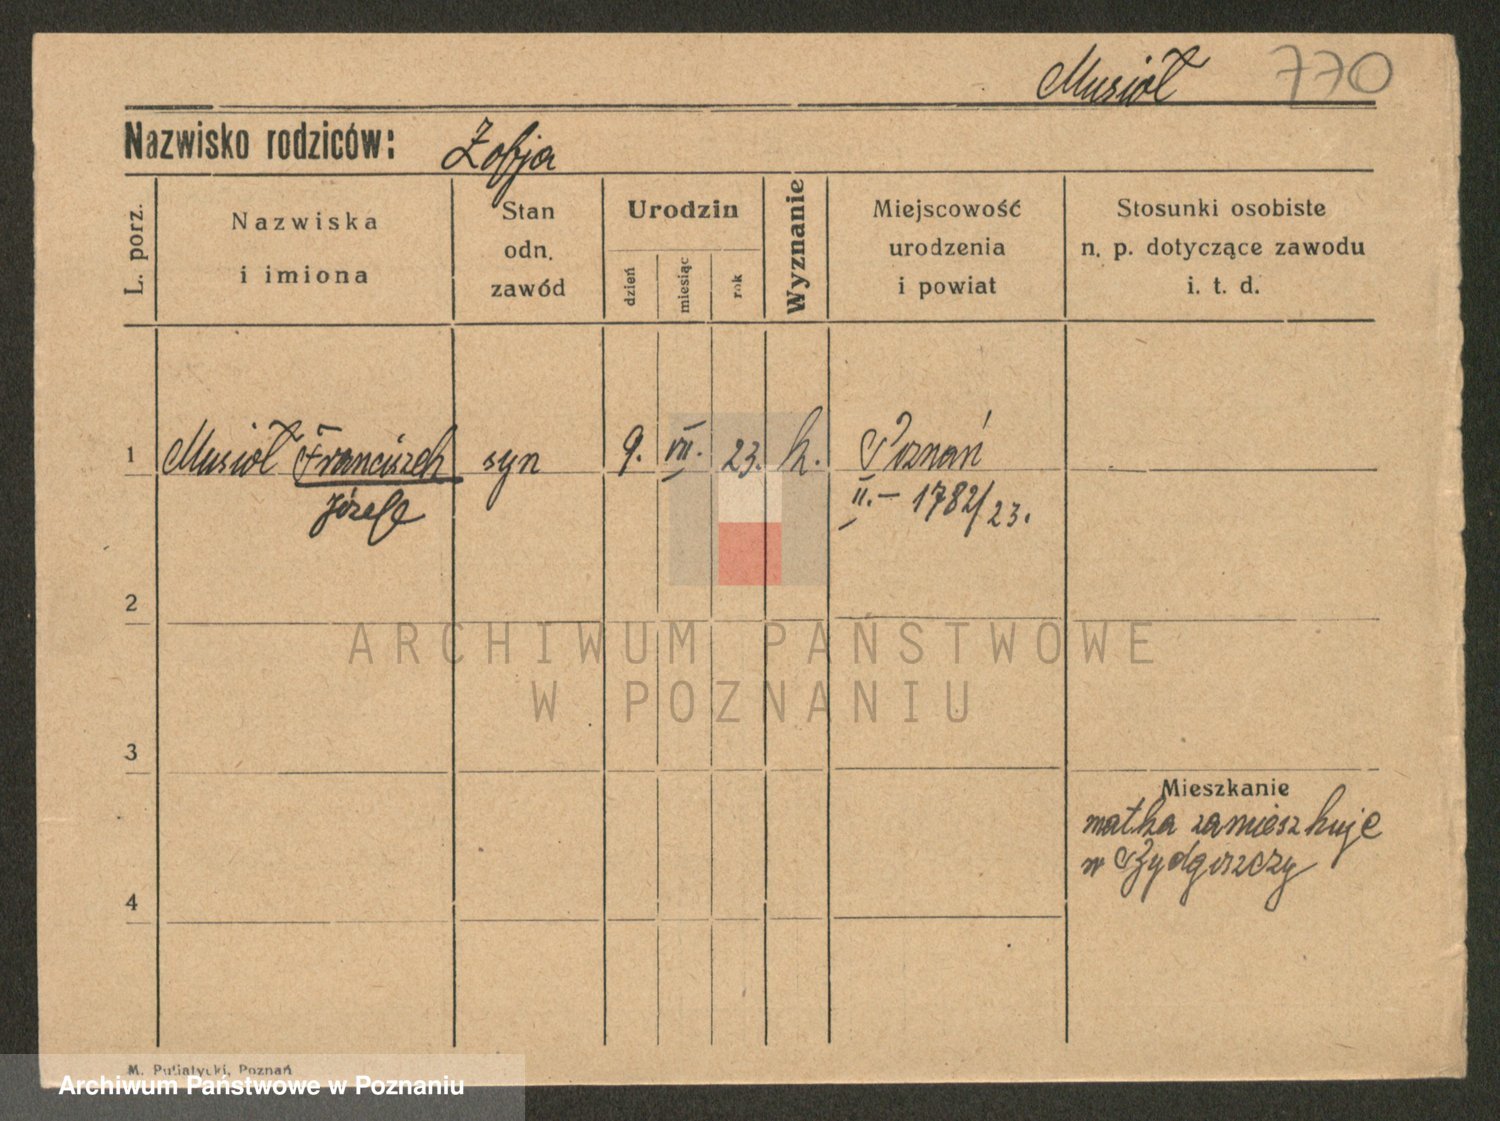 Musioł 770
Nazwisko rodziców: Zofja
L. porz.
Nazwiska
i imiona
Stan
odn.
zawód
Urodzin
dzień
miesiąc
rok
Wyznanie
Miejscowość
urodzenia
i powiat
Stosunki osobiste
n. p. dotyczące zawodu
i. t. d.
1 Musioł Franciszek syn 9. VII. 23. k. Poznań
Józef II.— 1782/23.
2
ARCHIWUM PAŃSTWOWE
W POZNANIU
3
Mieszkanie
matka zamieszkuje
w Bydgoszczy
4
M. Putiatycki, Poznań
Archiwum Państwowe w Poznaniu